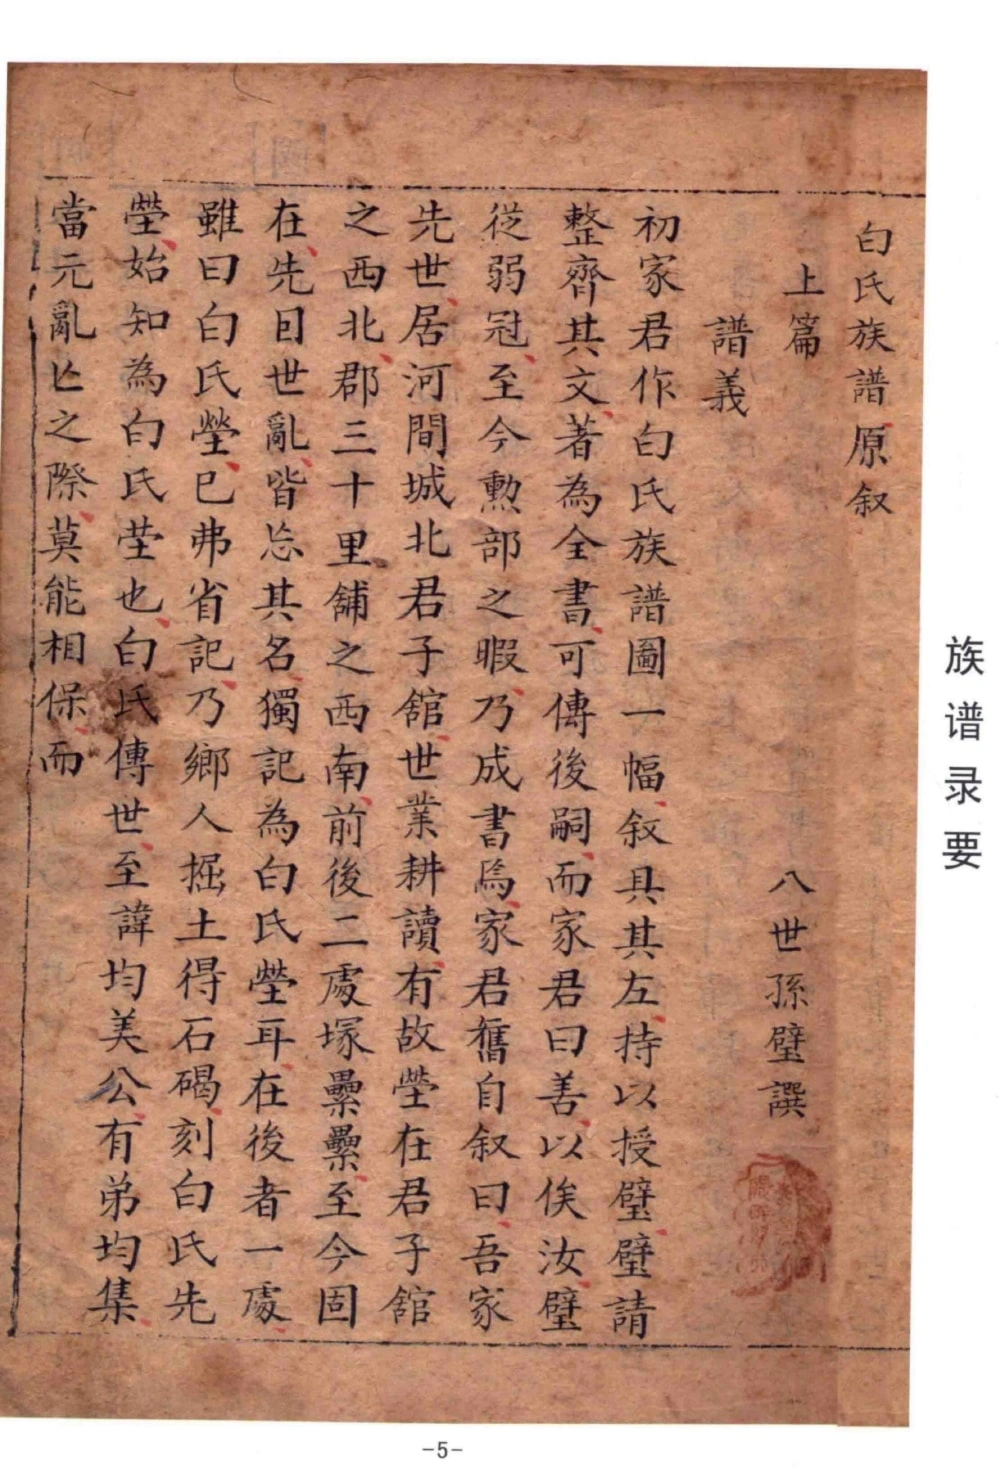 白氏族譜原叙
上篇
八世孫璧譔
譜義
初家君作白氏族譜圖一幅叙具其左持以授璧璧請
整齊其文著為全書可傳後嗣而家君曰善以俟汝璧
從弱冠至今勲部之暇乃成書焉家君舊自叙曰吾家
先世居河間城北君子館世業耕讀有故塋在君子館
之西北郡三十里舖之西南前後二處塚纍纍至今固
在先因世亂皆忘其名獨記為白氏塋耳在後者一處
雖曰白氏塋巳弗省記乃鄉人掘土得石碣刻白氏先
塋始知為白氏塋也白氏傳世至諱均美公有弟均集
當元亂亡之際莫能相保而
族谱录要
-5-